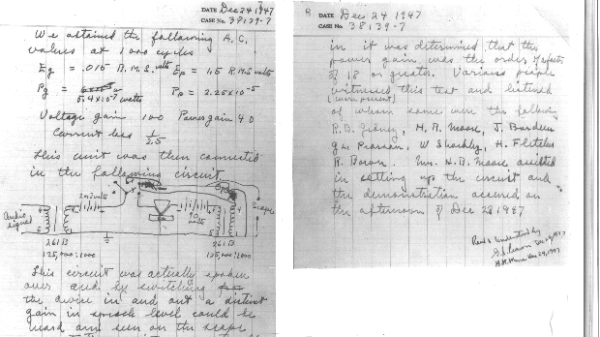 DATE Dec 24 1947
CASE No. 38139-7
We obtained the following A.C.
values at 1000 cycles
Eg = .015 R.M.S. volts Ep = 1.5 R.M.S. volts
Pg = 5.4 x 10⁻⁷ watts Pp = 2.25 x 10⁻⁵
Voltage gain 100 Power gain 40
Current loss 1/2.5
This unit was then connected
in the following circuit
Audio signal
261 B
125,000 : 1000
261 B
125,000 : 1000
This circuit was actually spoken
over and by switching
the device in and out a distinct
gain in speech level could be
heard and seen on the scope
8
DATE Dec 24 1947
CASE No. 38139-7
in it was determined that the
power gain was the order of
of 18 or greater. Various people
witnessed this test and listened
(were present)
of whom some were the following
R.B. Gibney, H.R. Moore, J. Bardeen
G.L. Pearson, W Shockley, H. Fletcher
R. Bown. Mr. H.R. Moore assisted
in setting up the circuit and
the demonstration occurred on
the afternoon of Dec 23 1947
Read & understood by
G.L. Pearson Dec 24, 1947
H.R. Moore Dec 24, 1947